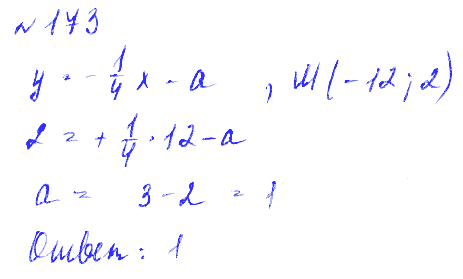 №173
y = -1/4 x - a , M(-12; 2)
2 = + 1/4 · 12 - a
a = 3 - 2 = 1
Ответ: 1